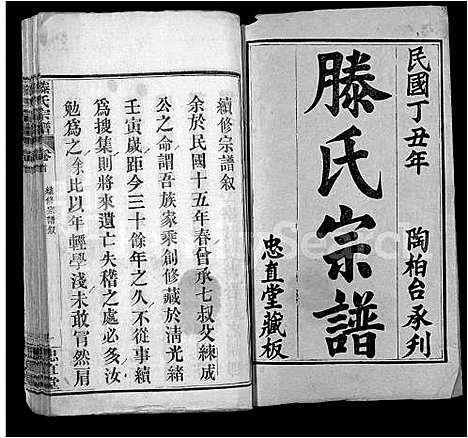 民國丁丑年
陶柏台承刊
滕氏宗譜
忠直堂藏板
續修宗譜叙
余於民國十五年春曾承七叔父練成
公之命謂吾族家乘創修藏於清光緒
壬寅歲距今三十餘年之久不從事續
為搜集則將來遺亡失稽之處必多汝
勉為之余比以年輕學淺未敢冐然肩
滕氏宗譜
卷首
續修宗譜叙
忠直堂